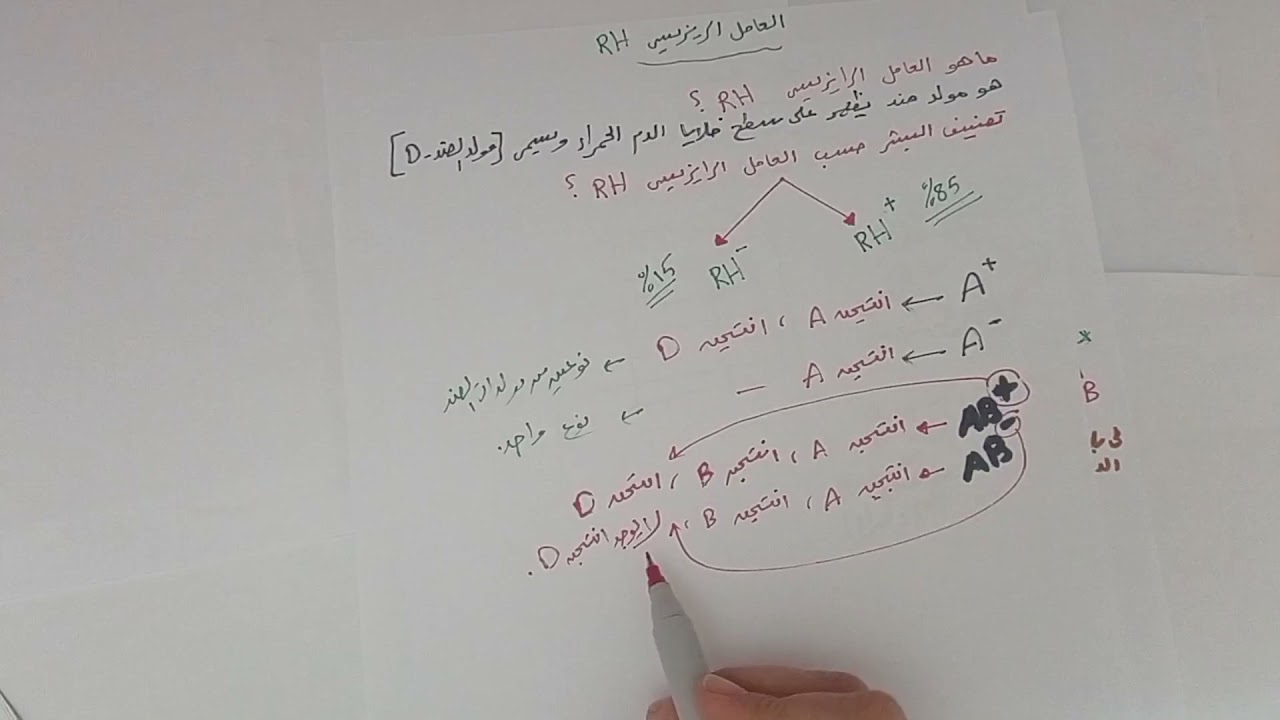 العامل الريزيسي RH
ما هو العامل الرايزيسي RH ؟
هو مولد ضد يظهر على سطح خلايا الدم الحمراء ويسمى [مولد الضد-D]
تصنيف البشر حسب العامل الرايزيسي RH ؟
RH+ %85
RH- %15
A+ ← انتيجين A ، انتيجين D ← نوعين من مولدات الضد
A- ← انتيجين A — ← نوع واحد.
AB+ ← انتيجين A ، انتيجين B ، انتيجين D
AB- ← انتيجين A ، انتيجين B ، لا يوجد انتيجين D.
B